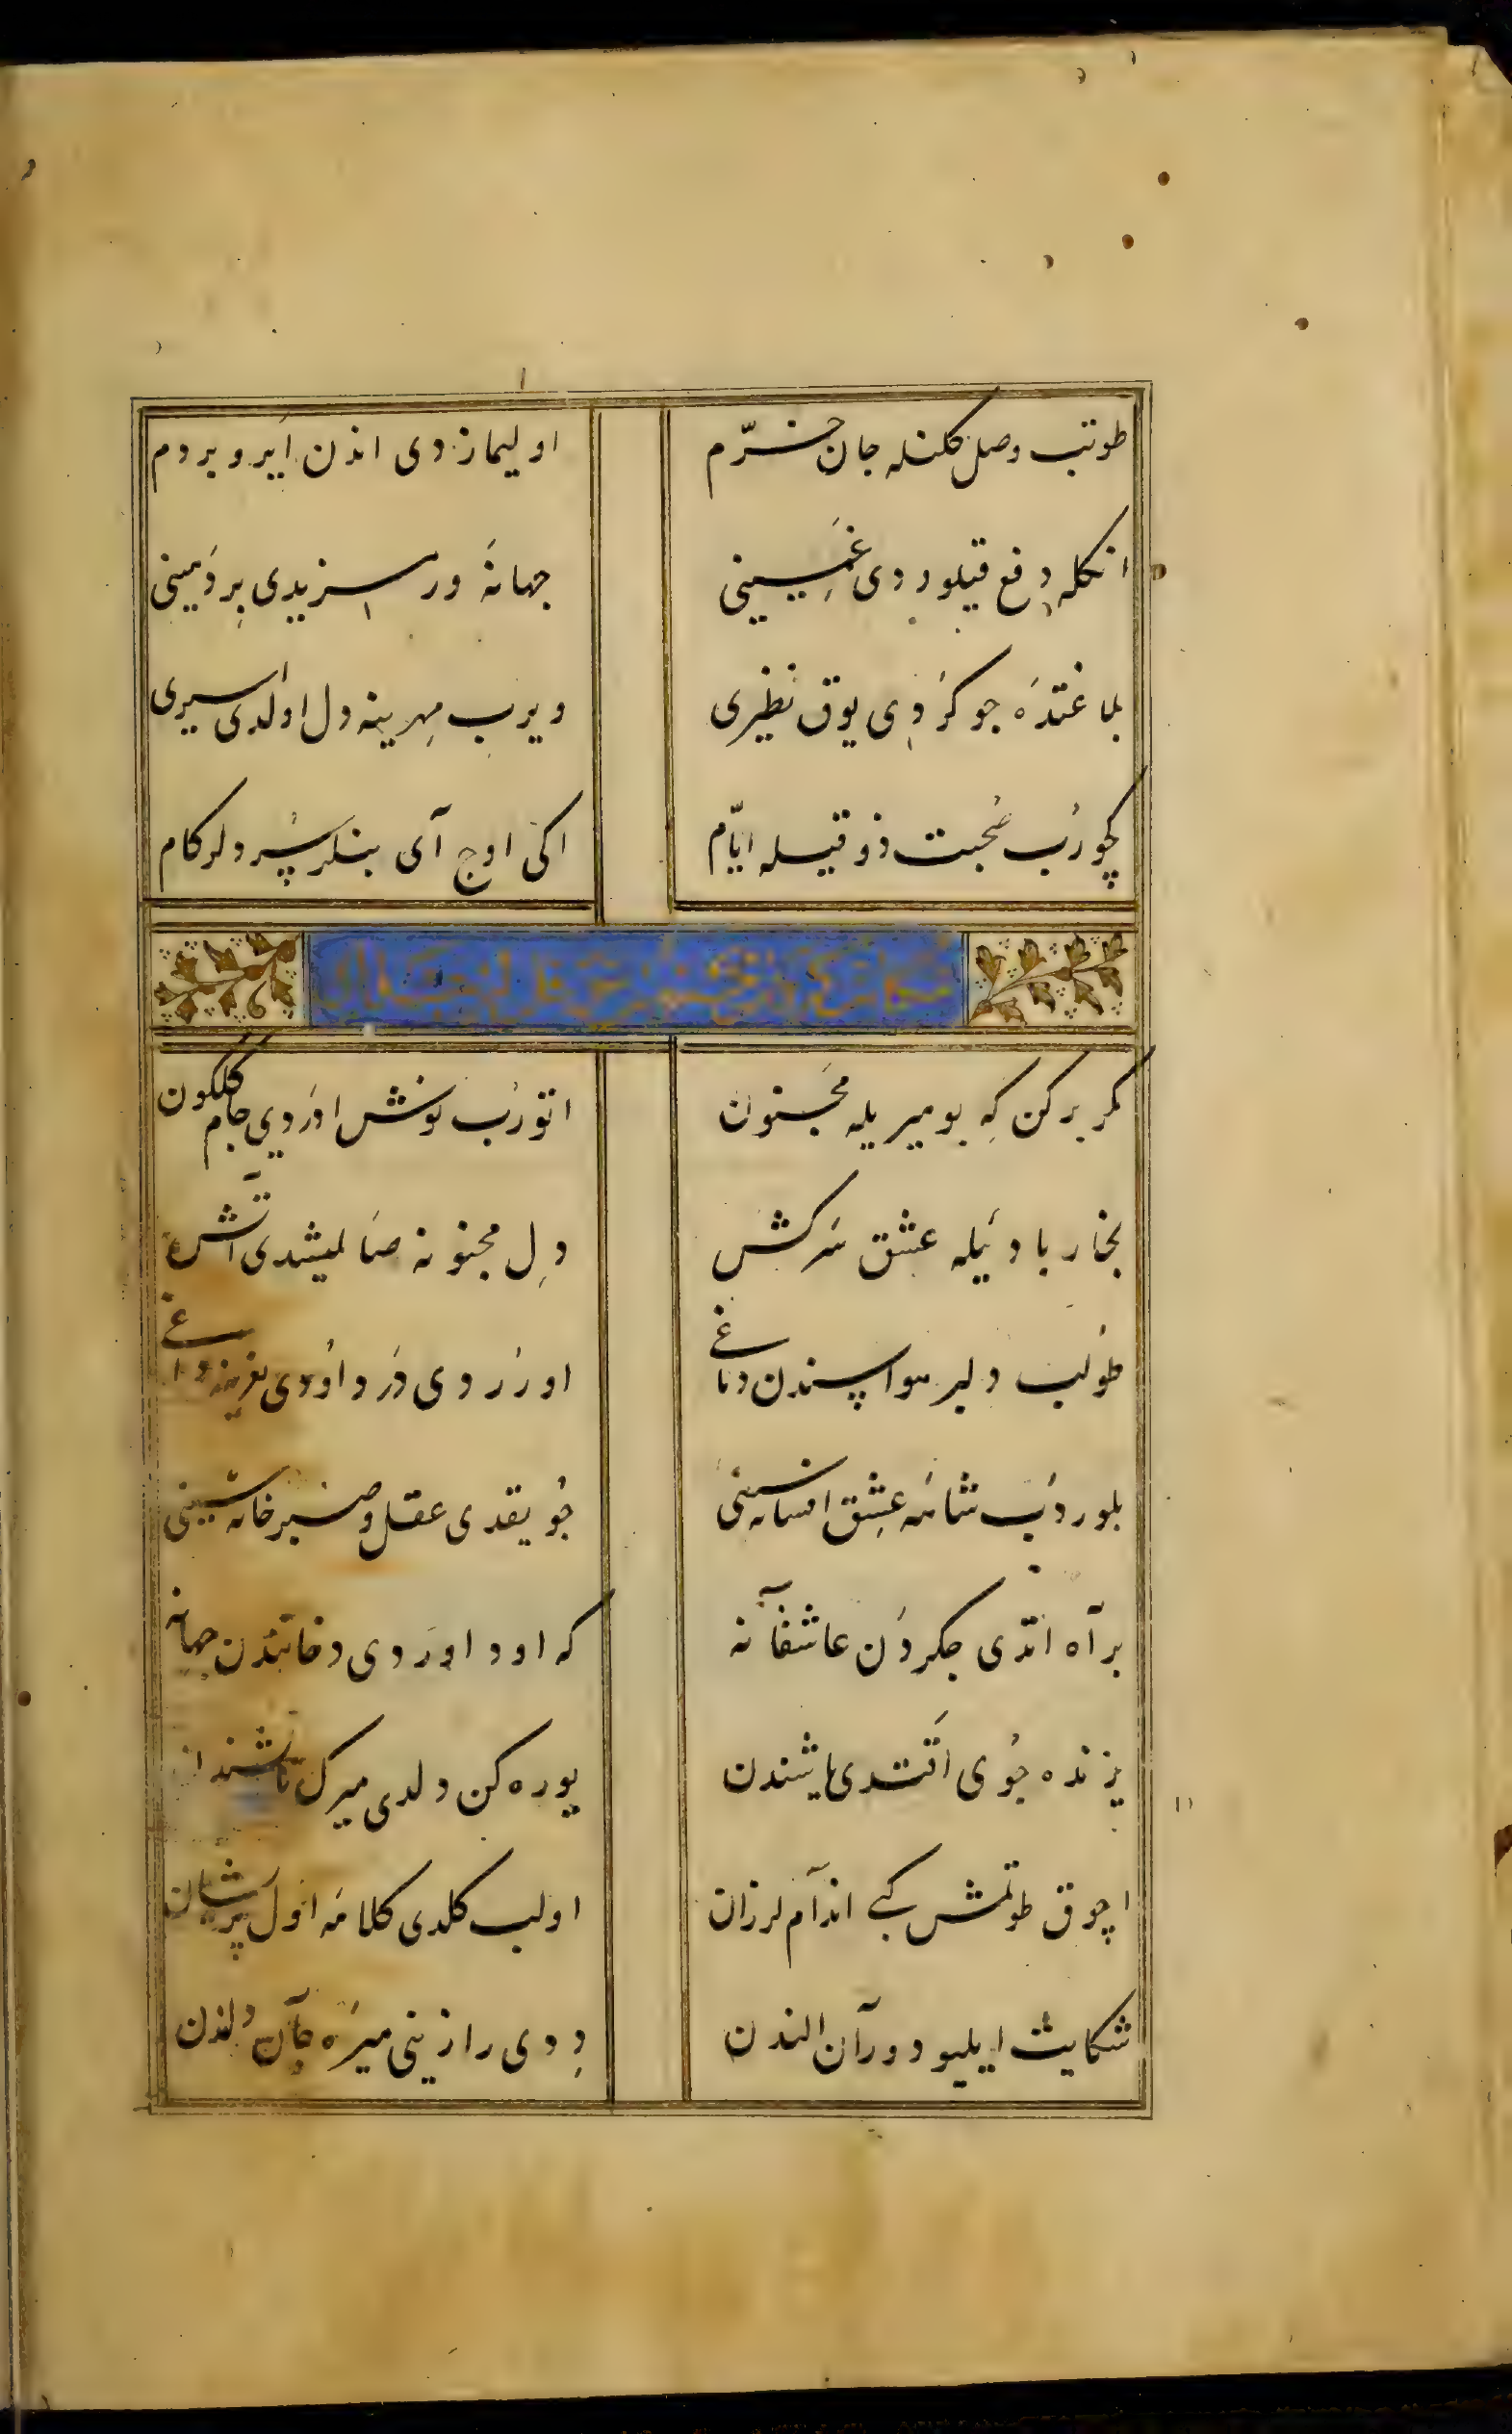 طوتب وصل كلنله جان خرّم اولیمازدی اندن ایرو بر دم
انكله دفع قیلوردی غمینی جهانه ورمزیدی بر دمینی
بلاغتده چو كزدی یوق نظیری ویرب مهرینه دل اولدی اسیری
كچورب صحبت ذوقیله ایّام اكی اوچ آی بنلر سُردلر كام
مكر بر كن كه بو میریله مجنون اتورب نوش اوردی جام كلكون
بخار بادئیله عشق سركش دل مجنونه صالمیشدی آتش
طولب دلبر هواسندن دماغ اوزردی درد اودی بغرینه داغ
بلوردب شانه عشق افسانه‌سینی چو یقدی عقل و صبر خانه‌سینی
بر آه اتدی جكردن عاشقانه كه اود اوردی دخانندن جهانه
ینده چوی اقتدی یاشندن یوره كن دلدی میرك تاشندن
اچوق طوتمش كبی اندام لرزان اولب كلدی كلامه اول پریشان
شكایت ایلیو دوران الندن ددی رازینی میره جان دلندن